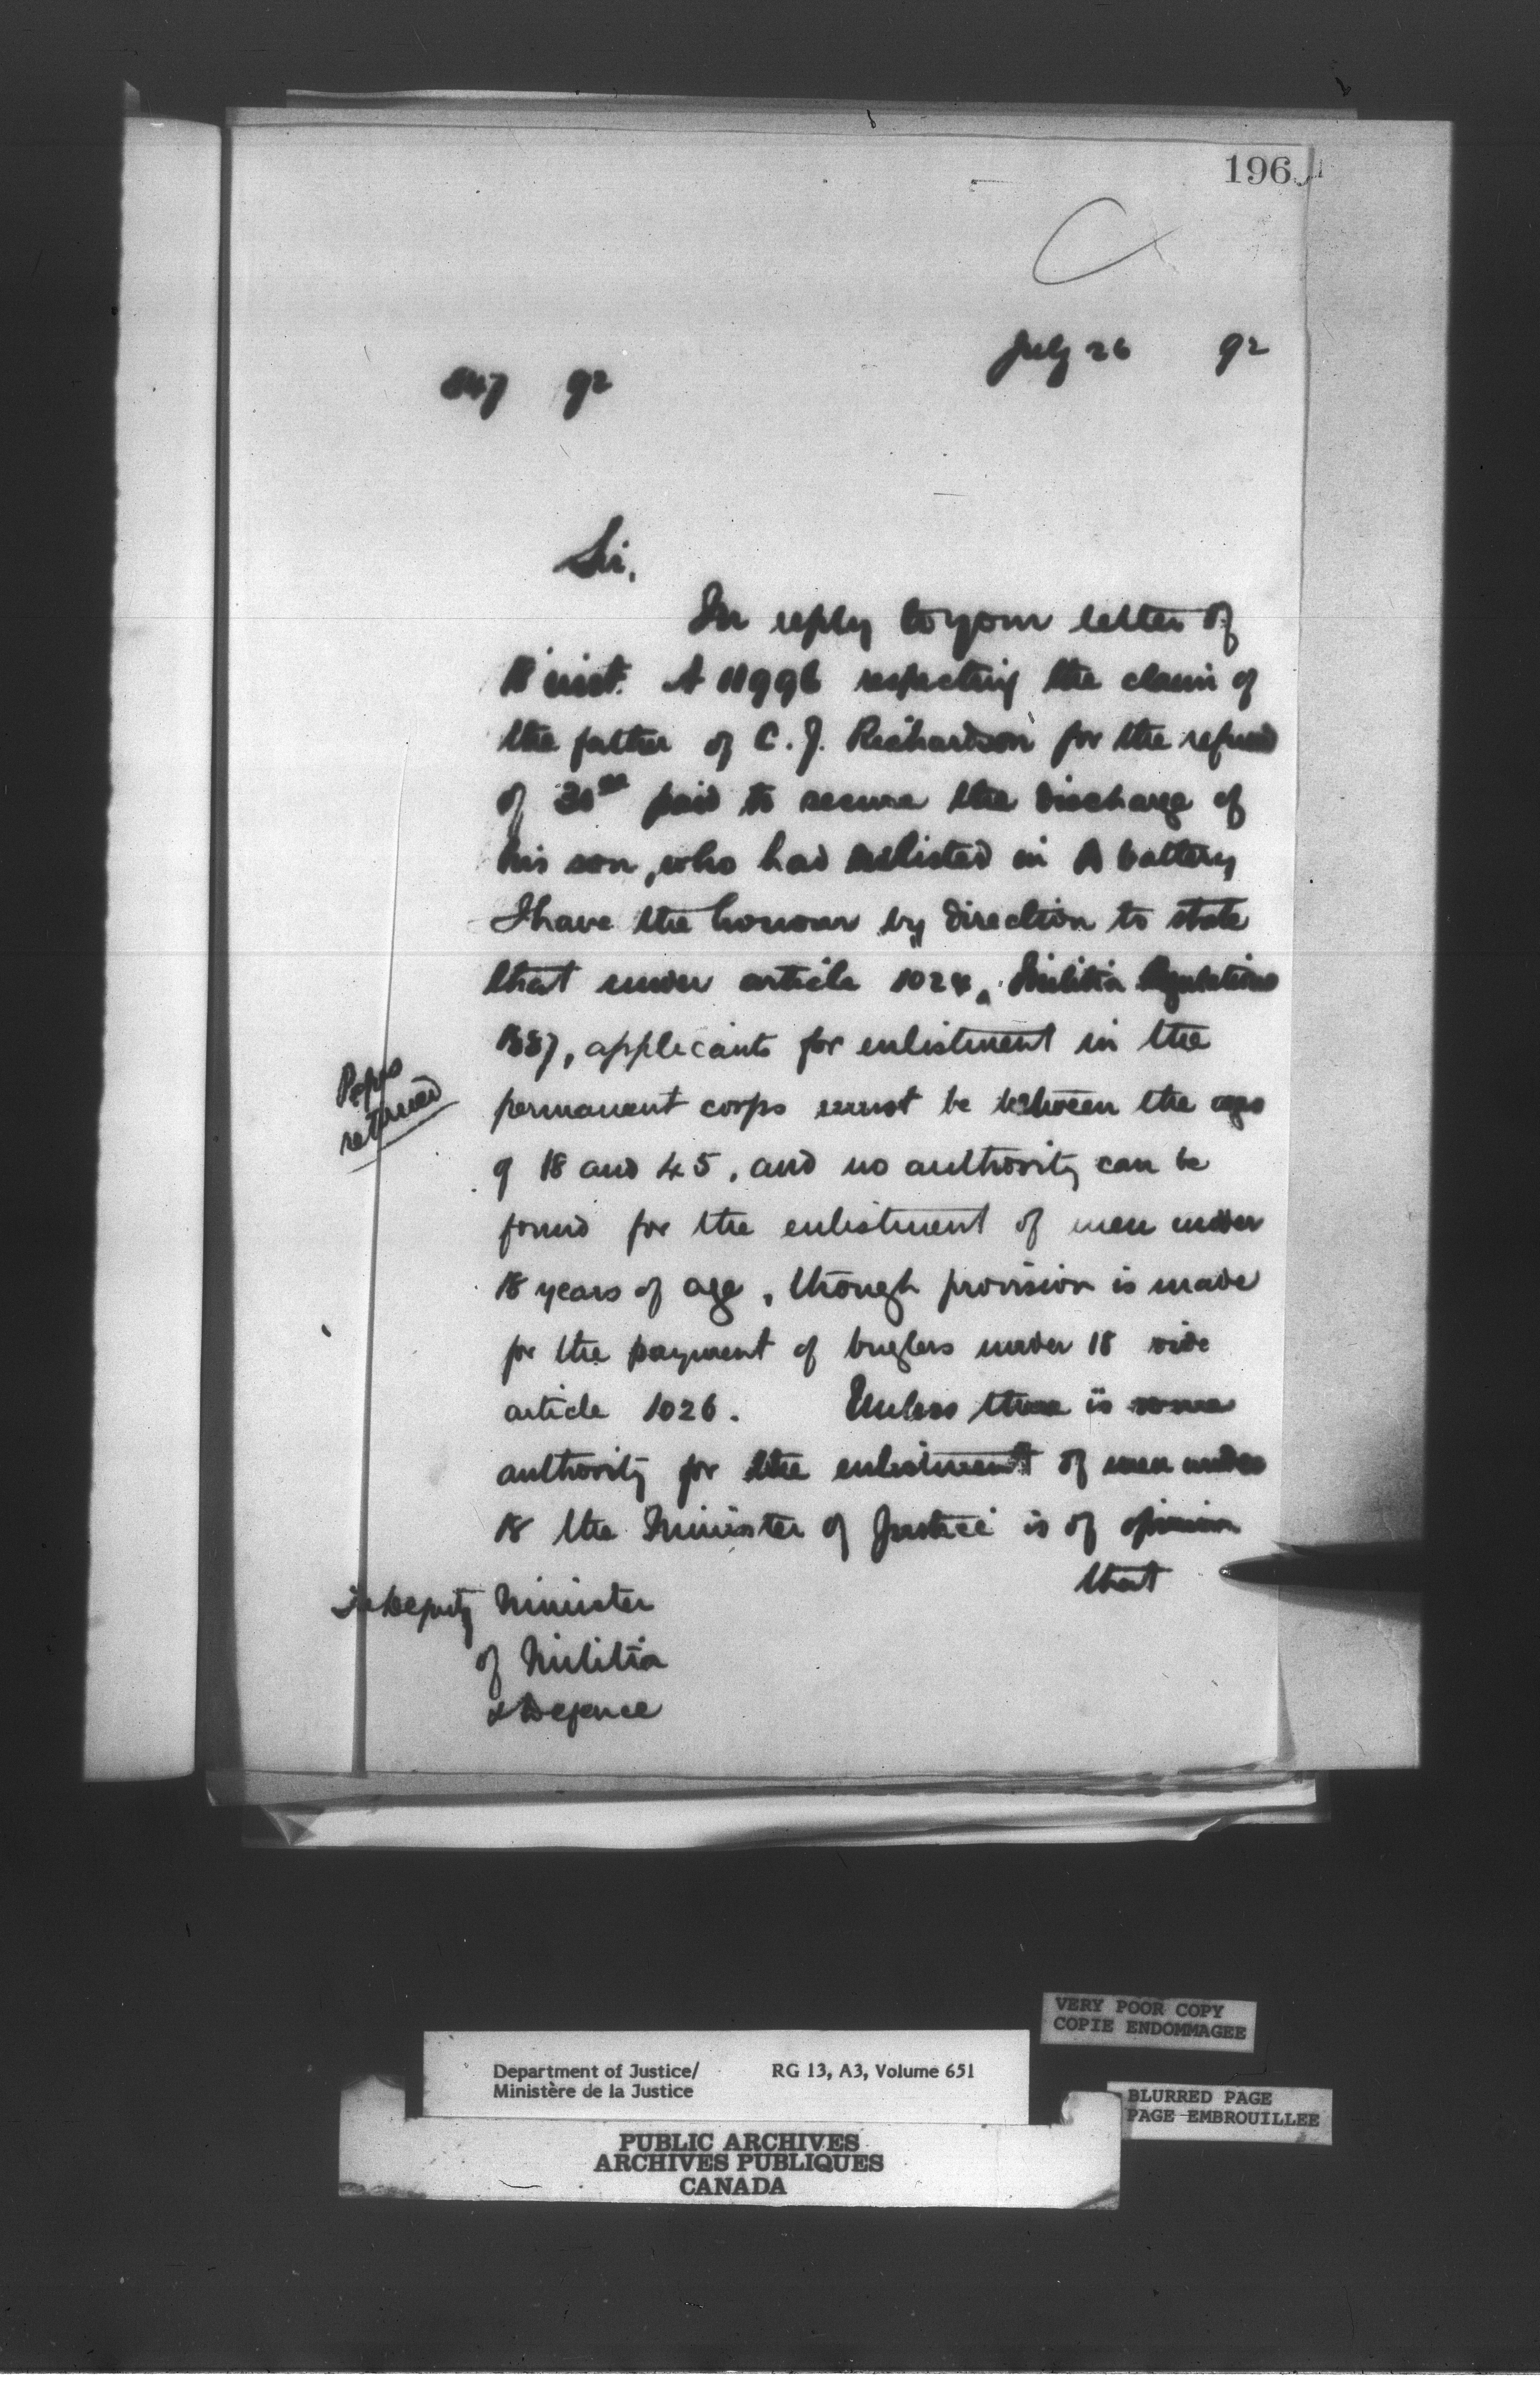 196
July 26 92
847 92
Sir,
In reply to your letter of
18 inst. A 11996 respecting the claim of
the father of C. J. Richardson for the refund
of 30 00 paid to secure the discharge of
his son, who had enlisted in A battery
I have the honour by direction to state
that under article 1024, Militia Regulations
1887, applicants for enlistment in the
permanent corps must be between the ages
of 18 and 45, and no authority can be
found for the enlistment of men under
18 years of age, though provision is made
for the payment of buglers under 18 vide
article 1026. Unless there is some
authority for the enlistment of men under
18 the Minister of Justice is of opinion
that
Paprs
returned
The Deputy Minister
of Militia
& Defence
VERY POOR COPY
COPIE ENDOMMAGEE
Department of Justice/ RG 13, A3, Volume 651
Ministère de la Justice
BLURRED PAGE
PAGE EMBROUILLEE
PUBLIC ARCHIVES
ARCHIVES PUBLIQUES
CANADA